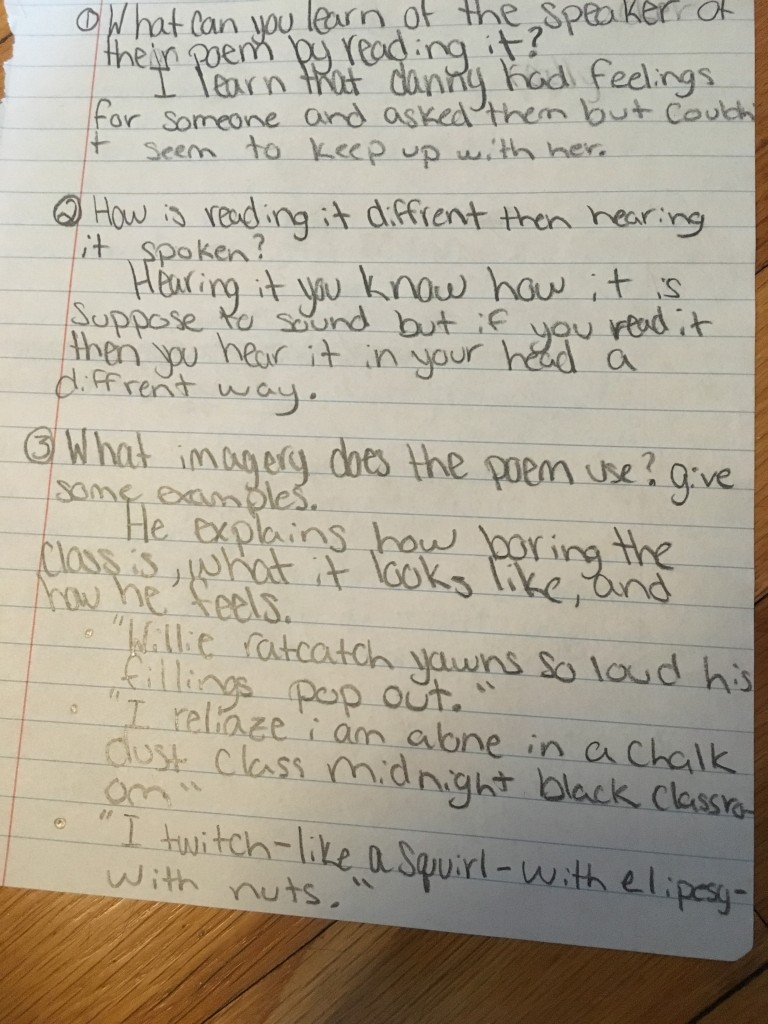 ① What can you learn of the speaker of
their poem by reading it?
I learn that danny had feelings
for someone and asked them but Couldn
t seem to keep up with her.
② How is reading it diffrent then hearing
it spoken?
Hearing it you know how it is
Suppose to sound but if you read it
then you hear it in your head a
diffrent way.
③ What imagery does the poem use? give
some examples.
He explains how boring the
Class is, what it looks like, and
how he feels.
• "Willie ratcatch yawns so loud his
fillings pop out."
• "I reliaze i am alone in a Chalk
dust Class midnight black Classro
om"
• "I twitch-like a Squirl-with elipesy-
With nuts."